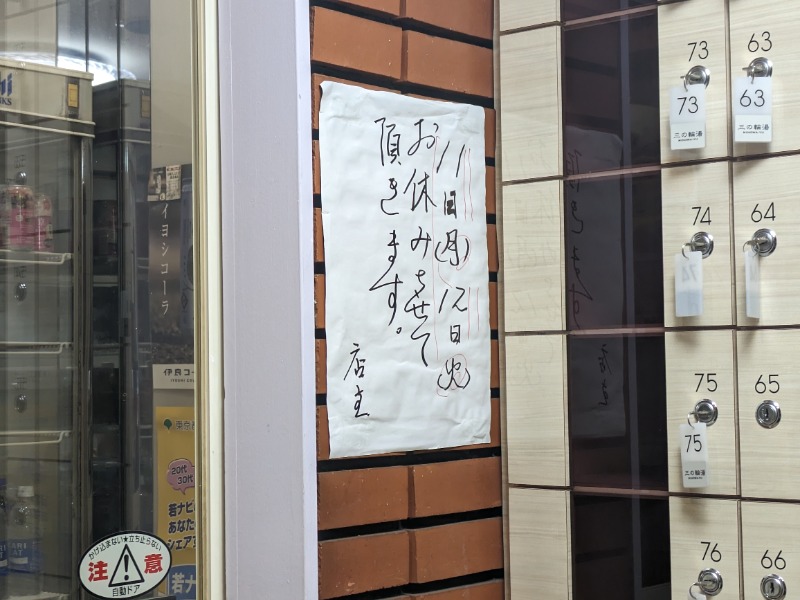 11日(月)12日(火)
お休みさせて
頂きます。
店主
73
63
73
三の輪湯
63
三の輪湯
74
64
74
75
65
75
三の輪湯
76
66
イヨシコーラ
伊良コーラ
20代
30代
若ナビ
あなた
シェア
若ナ
かけ込まない★立ち止らない
注意
自動ドア